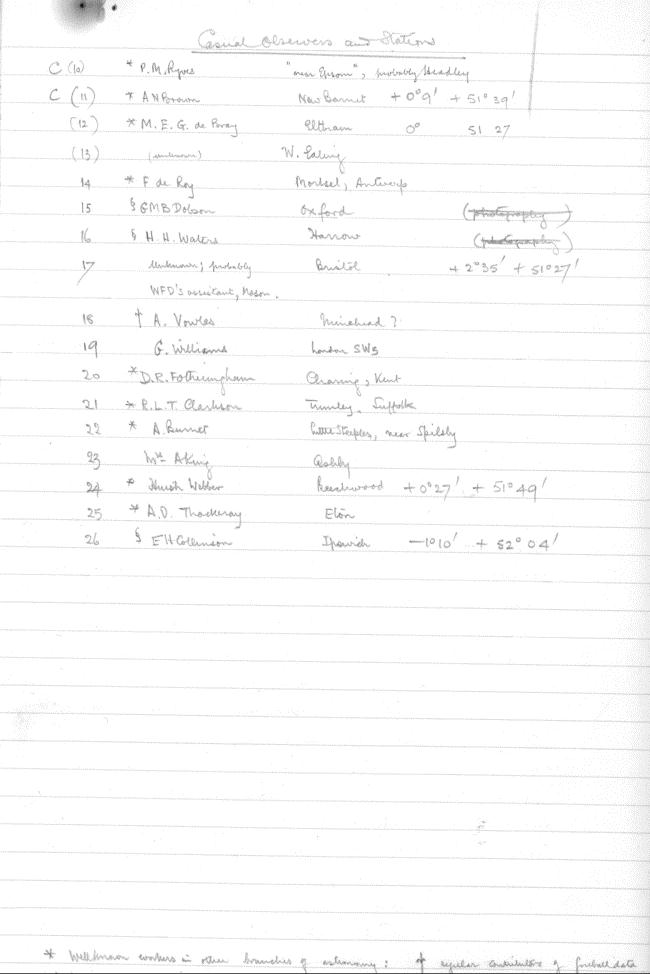 Casual Observers and Stations
C (10) * P.M. Ryves "near Epsom", probably Headley
C (11) * A N Brown New Barnet + 0° 9' + 51° 39'
(12) * M. E. G. de Poray Eltham 0° 51 27
(13) (unknown) W. Ealing
14 * F de Roy Mortsel, Antwerp
15 § GMB Dobson Oxford (photography)
16 § H. H. Waters Harrow (photography)
17 Unknown; probably Bristol + 2° 35' + 51° 27'
WFD's assistant, Mason.
18 † A. Vowles Minehead ?
19 G. Williams London SW5
20 * D.R. Fotheringham Charing, Kent
21 * R.L.T. Clarkson Trimley, Suffolk
22 * A. Burnet Little Steeples, near Spilsby
23 A King Ashby
24 * Hugh Webber Beechwood + 0° 27' + 51° 49'
25 * A.D. Thackeray Eton
26 § E H Collinson Ipswich — 1° 10' + 52° 04'
* Wellknown workers in other branches of astronomy: † regular contributors of fireball data